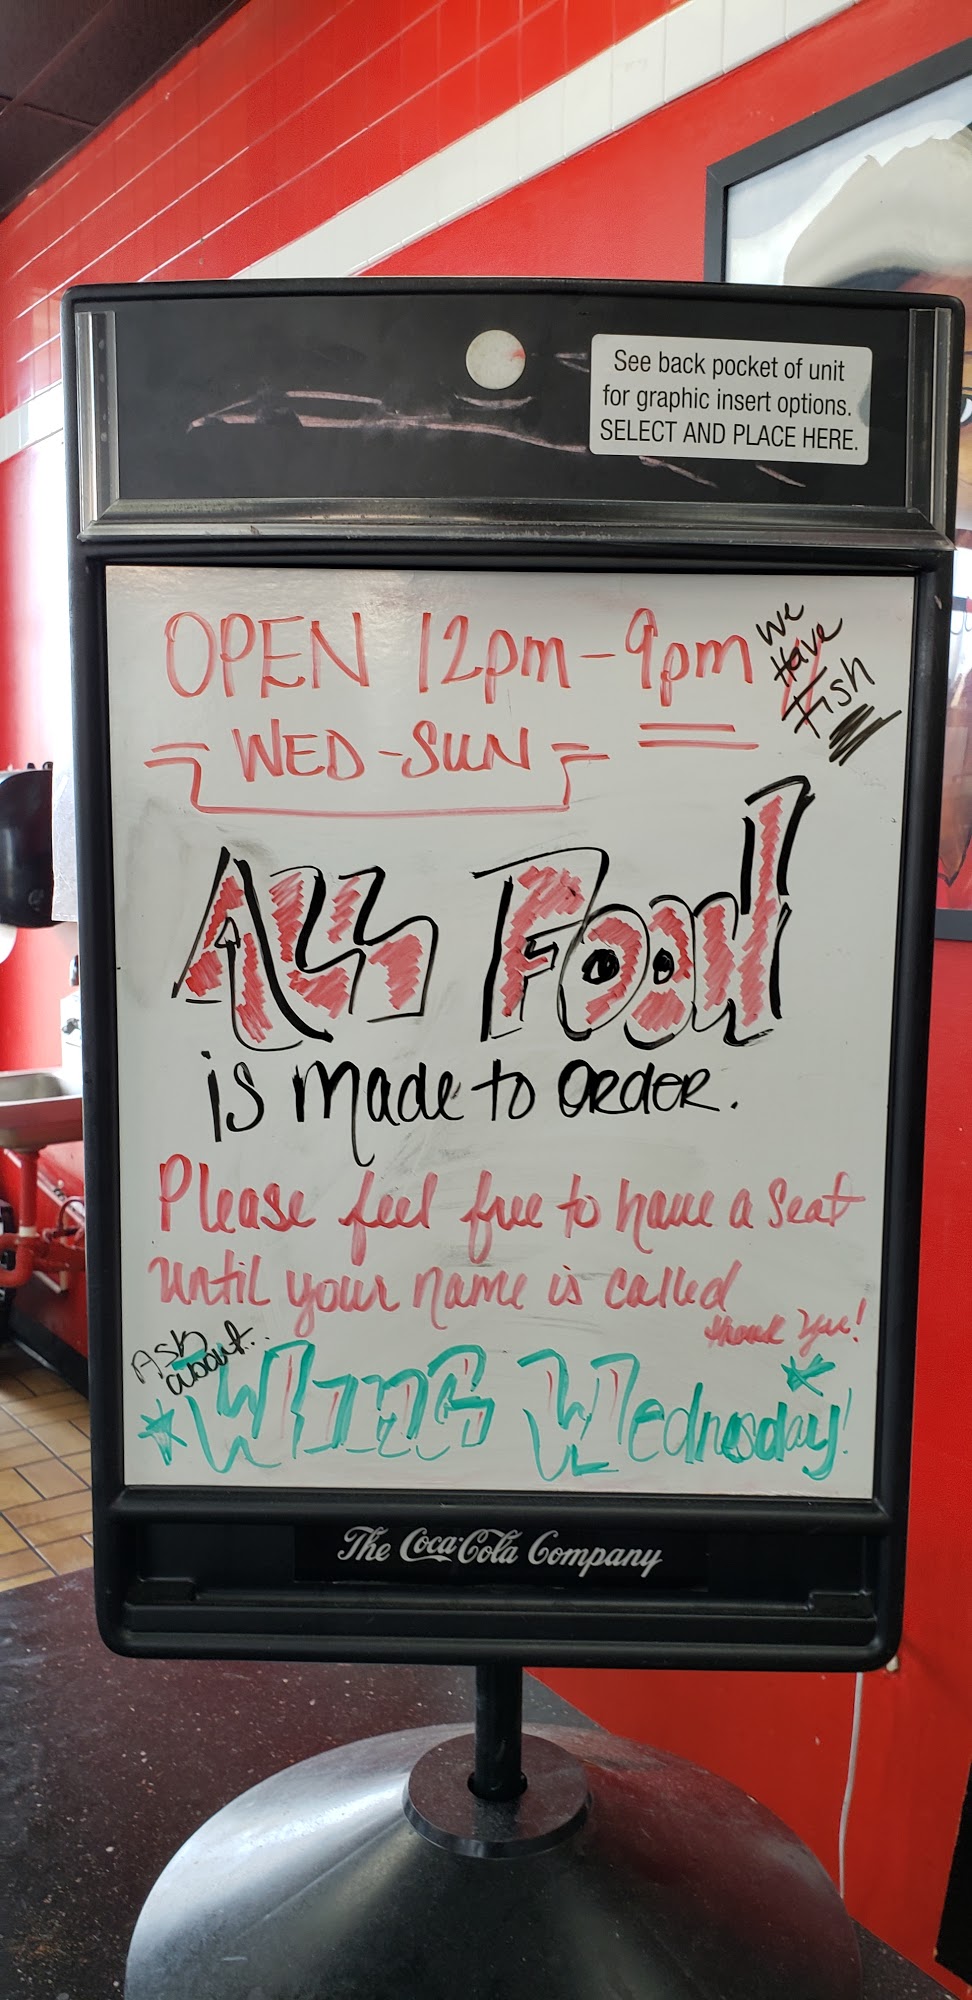 See back pocket of unit
for graphic insert options.
SELECT AND PLACE HERE.
OPEN 12pm-9pm
WED-SUN
We
Have
Fish
ALL FOOD
is made to ORDER.
Please feel free to have a seat
until your name is called
Thank You!
Ask
about...
WING Wednesday!
The Coca-Cola Company